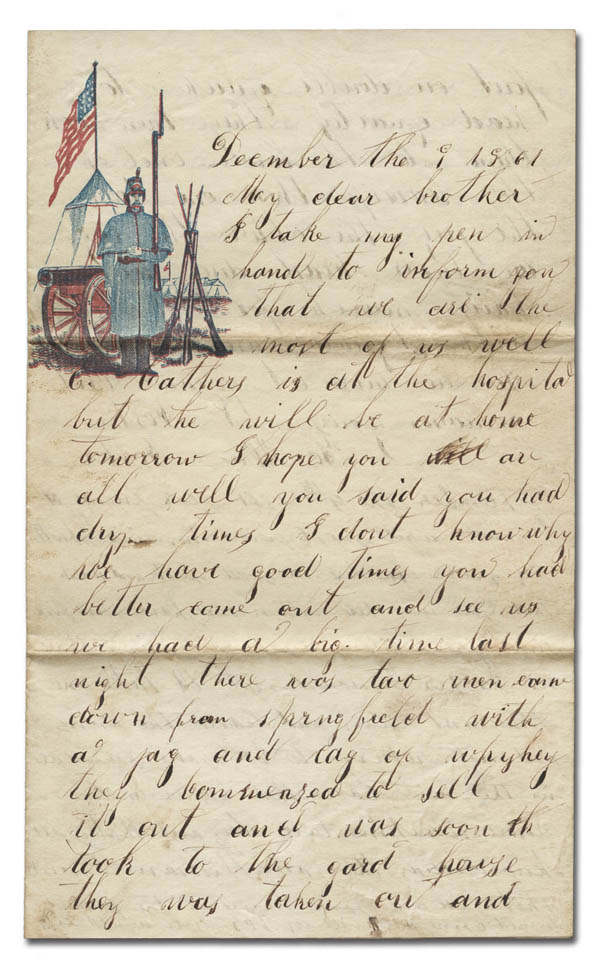 Deember the 9 1861
My dear brother
I take my pen in
hand to inform you
that we are the
most of us well
C. Cathers is at the hospital
but he will be at home
tomorrow I hope you are
all well you said you had
dry times I dont know why
we have good times you had
better come out and see us
we had a big time last
night there was two men came
down from springfield with
a jag and cag of wyhey
they commenzed to sell
it out and was soon
took to the gard house
they was taken out and